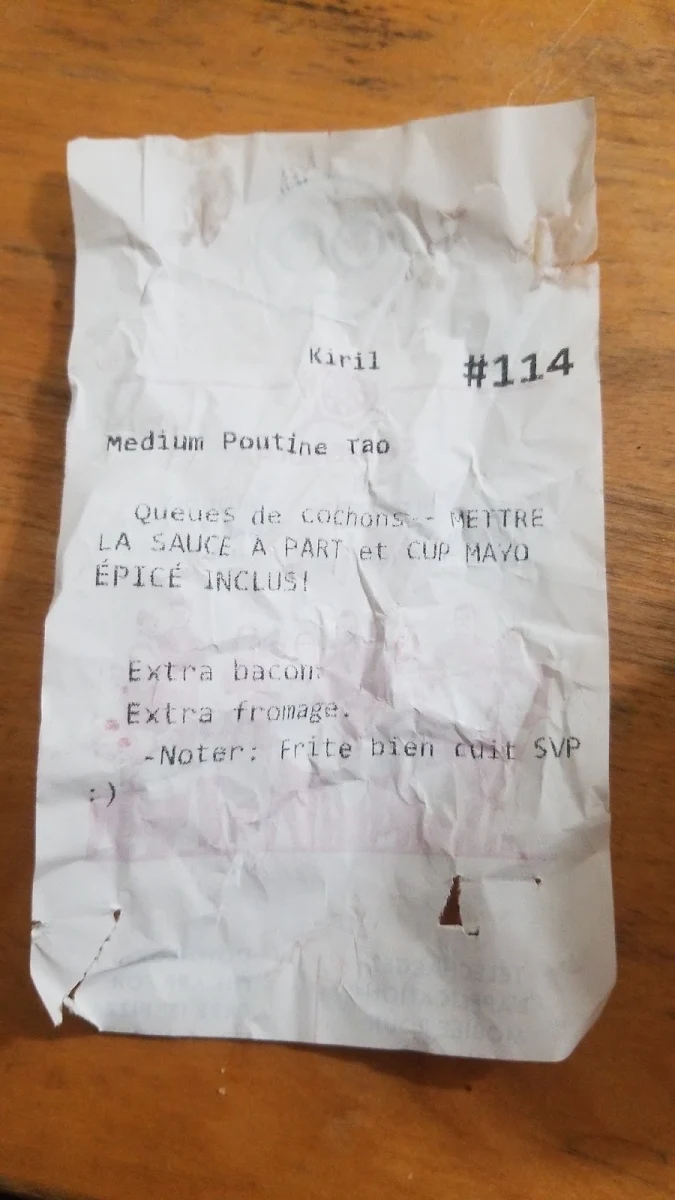 Kiril #114
Medium Poutine Tao
Queues de cochons-- METTRE
LA SAUCE À PART et CUP MAYO
ÉPICÉ INCLUS!
Extra bacon.
Extra fromage.
-Noter: Frite bien cuit SVP
:)